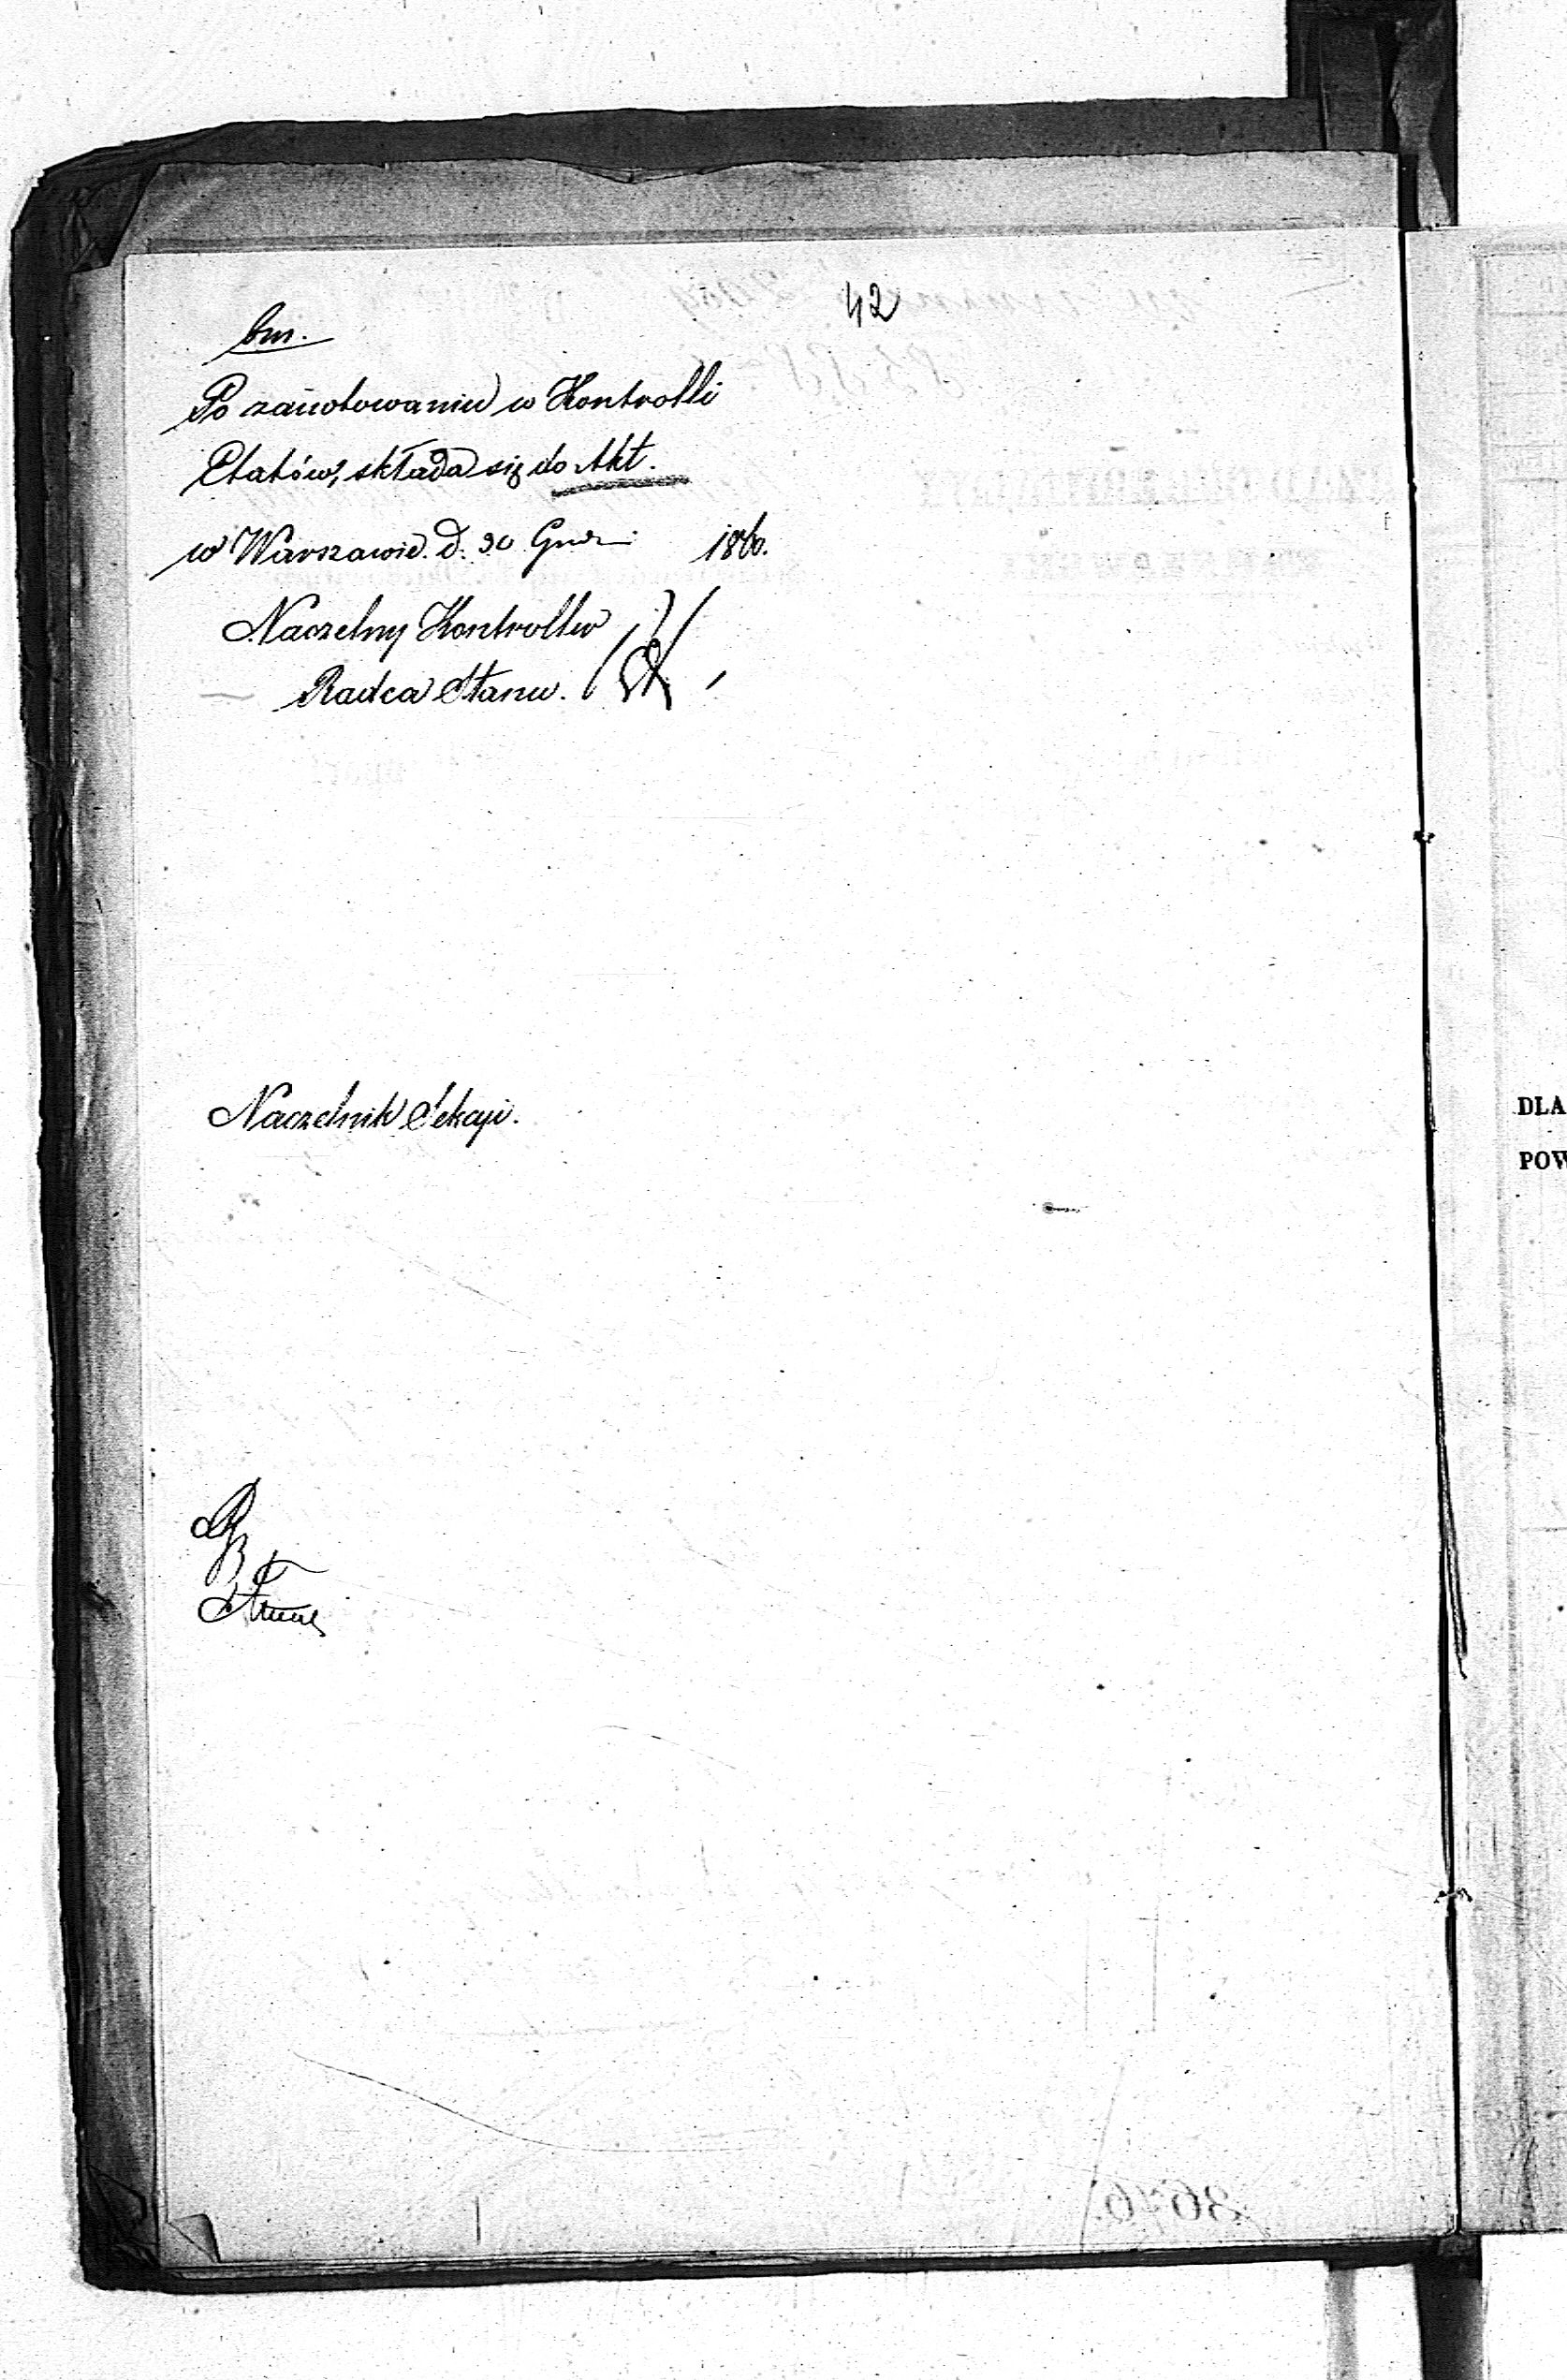 42
bm.
Po zanotowaniu w Kontrolli
Etatów, składa się do Akt.
w Warszawie. d. 30 Grud 1860.
Naczelny Kontroller
Radca Stanu.
Naczelnik Sekcyi.
DLA
POW